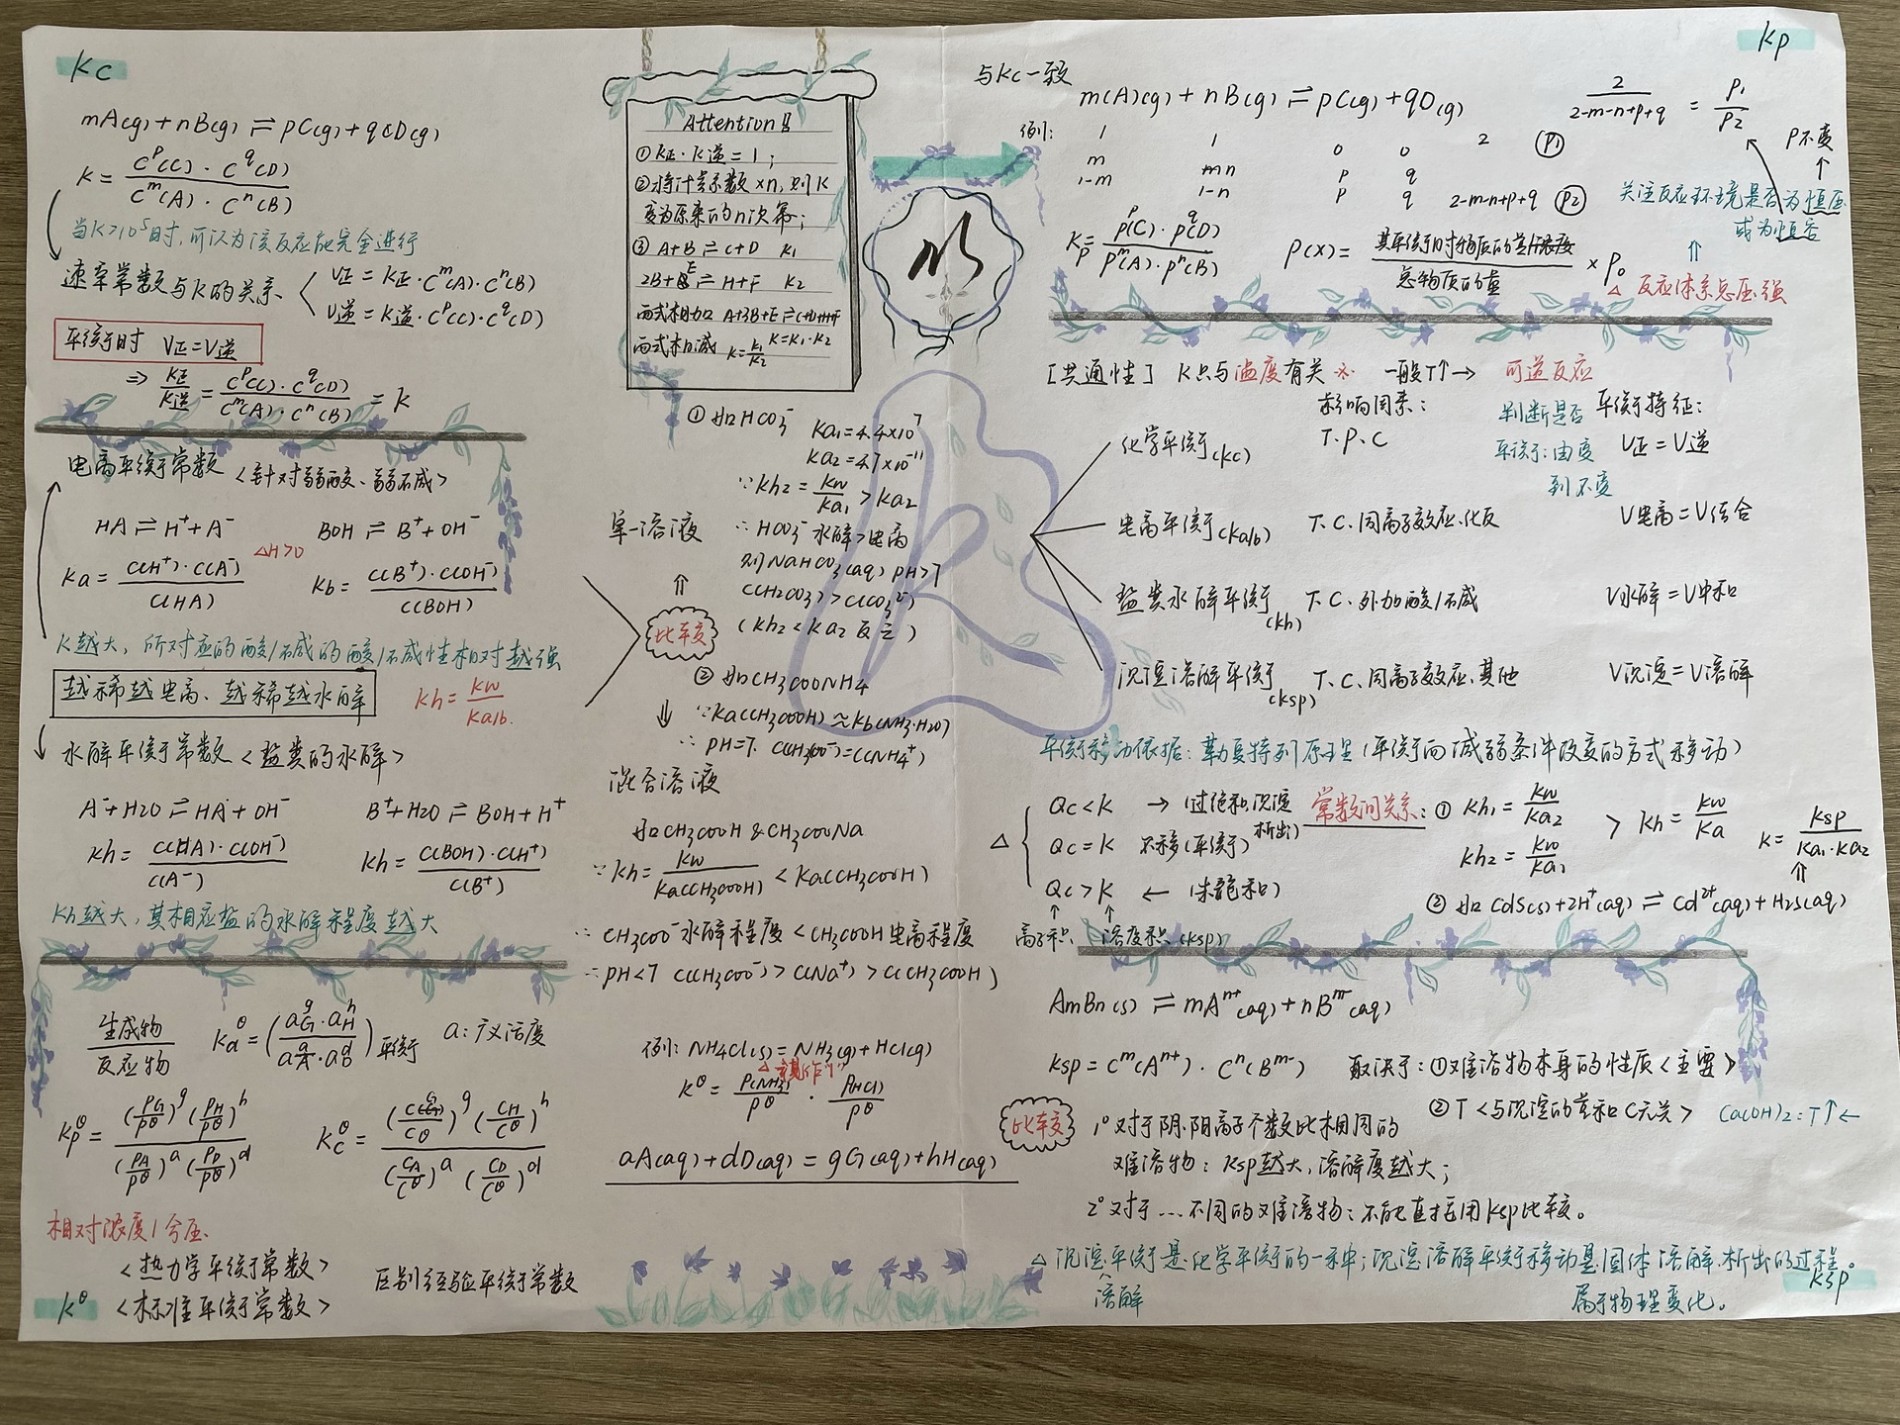 Kc
mA(g)+nB(g)⇌pC(g)+qD(g)
K=c^p(C)·c^q(D)/c^m(A)·c^n(B)
当K>10^5时,可认为该反应能完全进行
速率常数与K的关系
V正=K正·C^m(A)·C^n(B)
V逆=K逆·C^p(C)·C^q(D)
平衡时 V正=V逆
⇒ K正/K逆=C^p(C)·C^q(D)/C^m(A)·C^n(B)=K
电离平衡常数<针对弱酸、弱碱>
HA⇌H⁺+A⁻ BOH⇌B⁺+OH⁻
△H>0
Ka=C(H⁺)·C(A⁻)/C(HA) Kb=C(B⁺)·C(OH⁻)/C(BOH)
K越大,所对应的酸/碱的酸/碱性相对越强
越稀越电离、越稀越水解 Kh=Kw/Ka/b.
水解平衡常数<盐类的水解>
A⁻+H2O⇌HA+OH⁻ B⁺+H2O⇌BOH+H⁺
Kh=C(HA)·C(OH⁻)/C(A⁻) Kh=C(BOH)·C(H⁺)/C(B⁺)
Kh越大,其相应盐的水解程度越大
生成物/反应物 Ka^θ=(a_G^g·a_H^h/a_A^a·a_D^d)平衡 a:广义活度
Kp^θ=(PG/P^θ)^g(PH/P^θ)^h/(PA/P^θ)^a(PD/P^θ)^d Kc^θ=(C(G)/C^θ)^g(CH/C^θ)^h/(CA/C^θ)^a(CD/C^θ)^d
相对浓度/分压.
<热力学平衡常数>
K^θ <标准平衡常数> 区别经验平衡常数
Attention!!
①K正·K逆=1;
②将计量系数×n,则K
变为原来的n次幂;
③A+B⇌C+D K1
2B+E⇌H+F K2
两式相加 A+3B+E⇌C+D+H+F
K=K1·K2
两式相减 K=K1/K2
①如HCO3⁻ Ka1=4.4×10⁻⁷
Ka2=4.7×10⁻¹¹
∵Kh2=Kw/Ka1>Ka2
单一溶液 ∴HCO3⁻水解>电离
则NaHCO3(aq) PH>7
C(H2CO3)>C(CO3²⁻)
(Kh2<Ka2反之)
比较
②如CH3COONH4
∵Ka(CH3COOH)≈Kb(NH3·H2O)
∴PH=7. C(CH3COO⁻)=C(NH4⁺)
混合溶液
如CH3COOH & CH3COONa
∵Kh=Kw/Ka(CH3COOH)<Ka(CH3COOH)
∴CH3COO⁻水解程度<CH3COOH电离程度
∴PH<7 C(CH3COO⁻)>C(Na⁺)>C(CH3COOH)
例:NH4Cl(s)=NH3(g)+HCl(g)
△视作"1"
K^θ=P(NH3)/P^θ·P(HCl)/P^θ
aA(aq)+dD(aq)=gG(aq)+hH(aq)
Kp
与Kc一致
m(A)(g)+nB(g)⇌pC(g)+qD(g)
2/2-m-n+p+q=P1/P2
例: 1 1 0 0 2 (P1)
m n p q
1-m 1-n p q 2-m-n+p+q (P2)
P不变
关注反应环境是否为恒压
或为恒容
Kp=p^p(C)·p^q(D)/p^m(A)·p^n(B)
P(X)=某平衡时物质的量浓度/总物质的量×P0
△反应体系总压强
[共通性] K只与温度有关※ 一般T↑→ 可逆反应
影响因素: 判断是否 平衡特征:
化学平衡(Kc) T.P.C 平衡:由变 V正=V逆
到不变
电离平衡(Ka/b) T.C.同离子效应.化反 V电离=V结合
盐类水解平衡(Kh) T.C.外加酸/碱 V水解=V中和
沉淀溶解平衡(Ksp) T.C.同离子效应.其他 V沉淀=V溶解
平衡移动依据:勒夏特列原理(平衡向减弱条件改变的方式移动)
△
Qc<K → 过饱和,沉淀析出)
Qc=K 不移(平衡)
Qc>K ← (未饱和)
离子积 溶度积(Ksp)
常数间关系:①Kh1=Kw/Ka2
Kh2=Kw/Ka1
>Kh=Kw/Ka K=Ksp/Ka1·Ka2
②如CdS(s)+2H⁺(aq)⇌Cd²⁺(aq)+H2S(aq)
AmBn(s)⇌mAⁿ⁺(aq)+nBᵐ⁻(aq)
Ksp=Cᵐ(Aⁿ⁺)·Cⁿ(Bᵐ⁻) 取决于:①难溶物本身的性质<主要>
②T<与沉淀的量和C无关> Ca(OH)2:T↑←
比较 1°对于阴.阳离子个数比相同的
难溶物:Ksp越大,溶解度越大;
2°对于…不同的难溶物:不能直接用Ksp比较。
△沉淀平衡是化学平衡的一种;沉淀溶解平衡移动是固体溶解.析出的过程。
溶解 属于物理变化。
Ksp